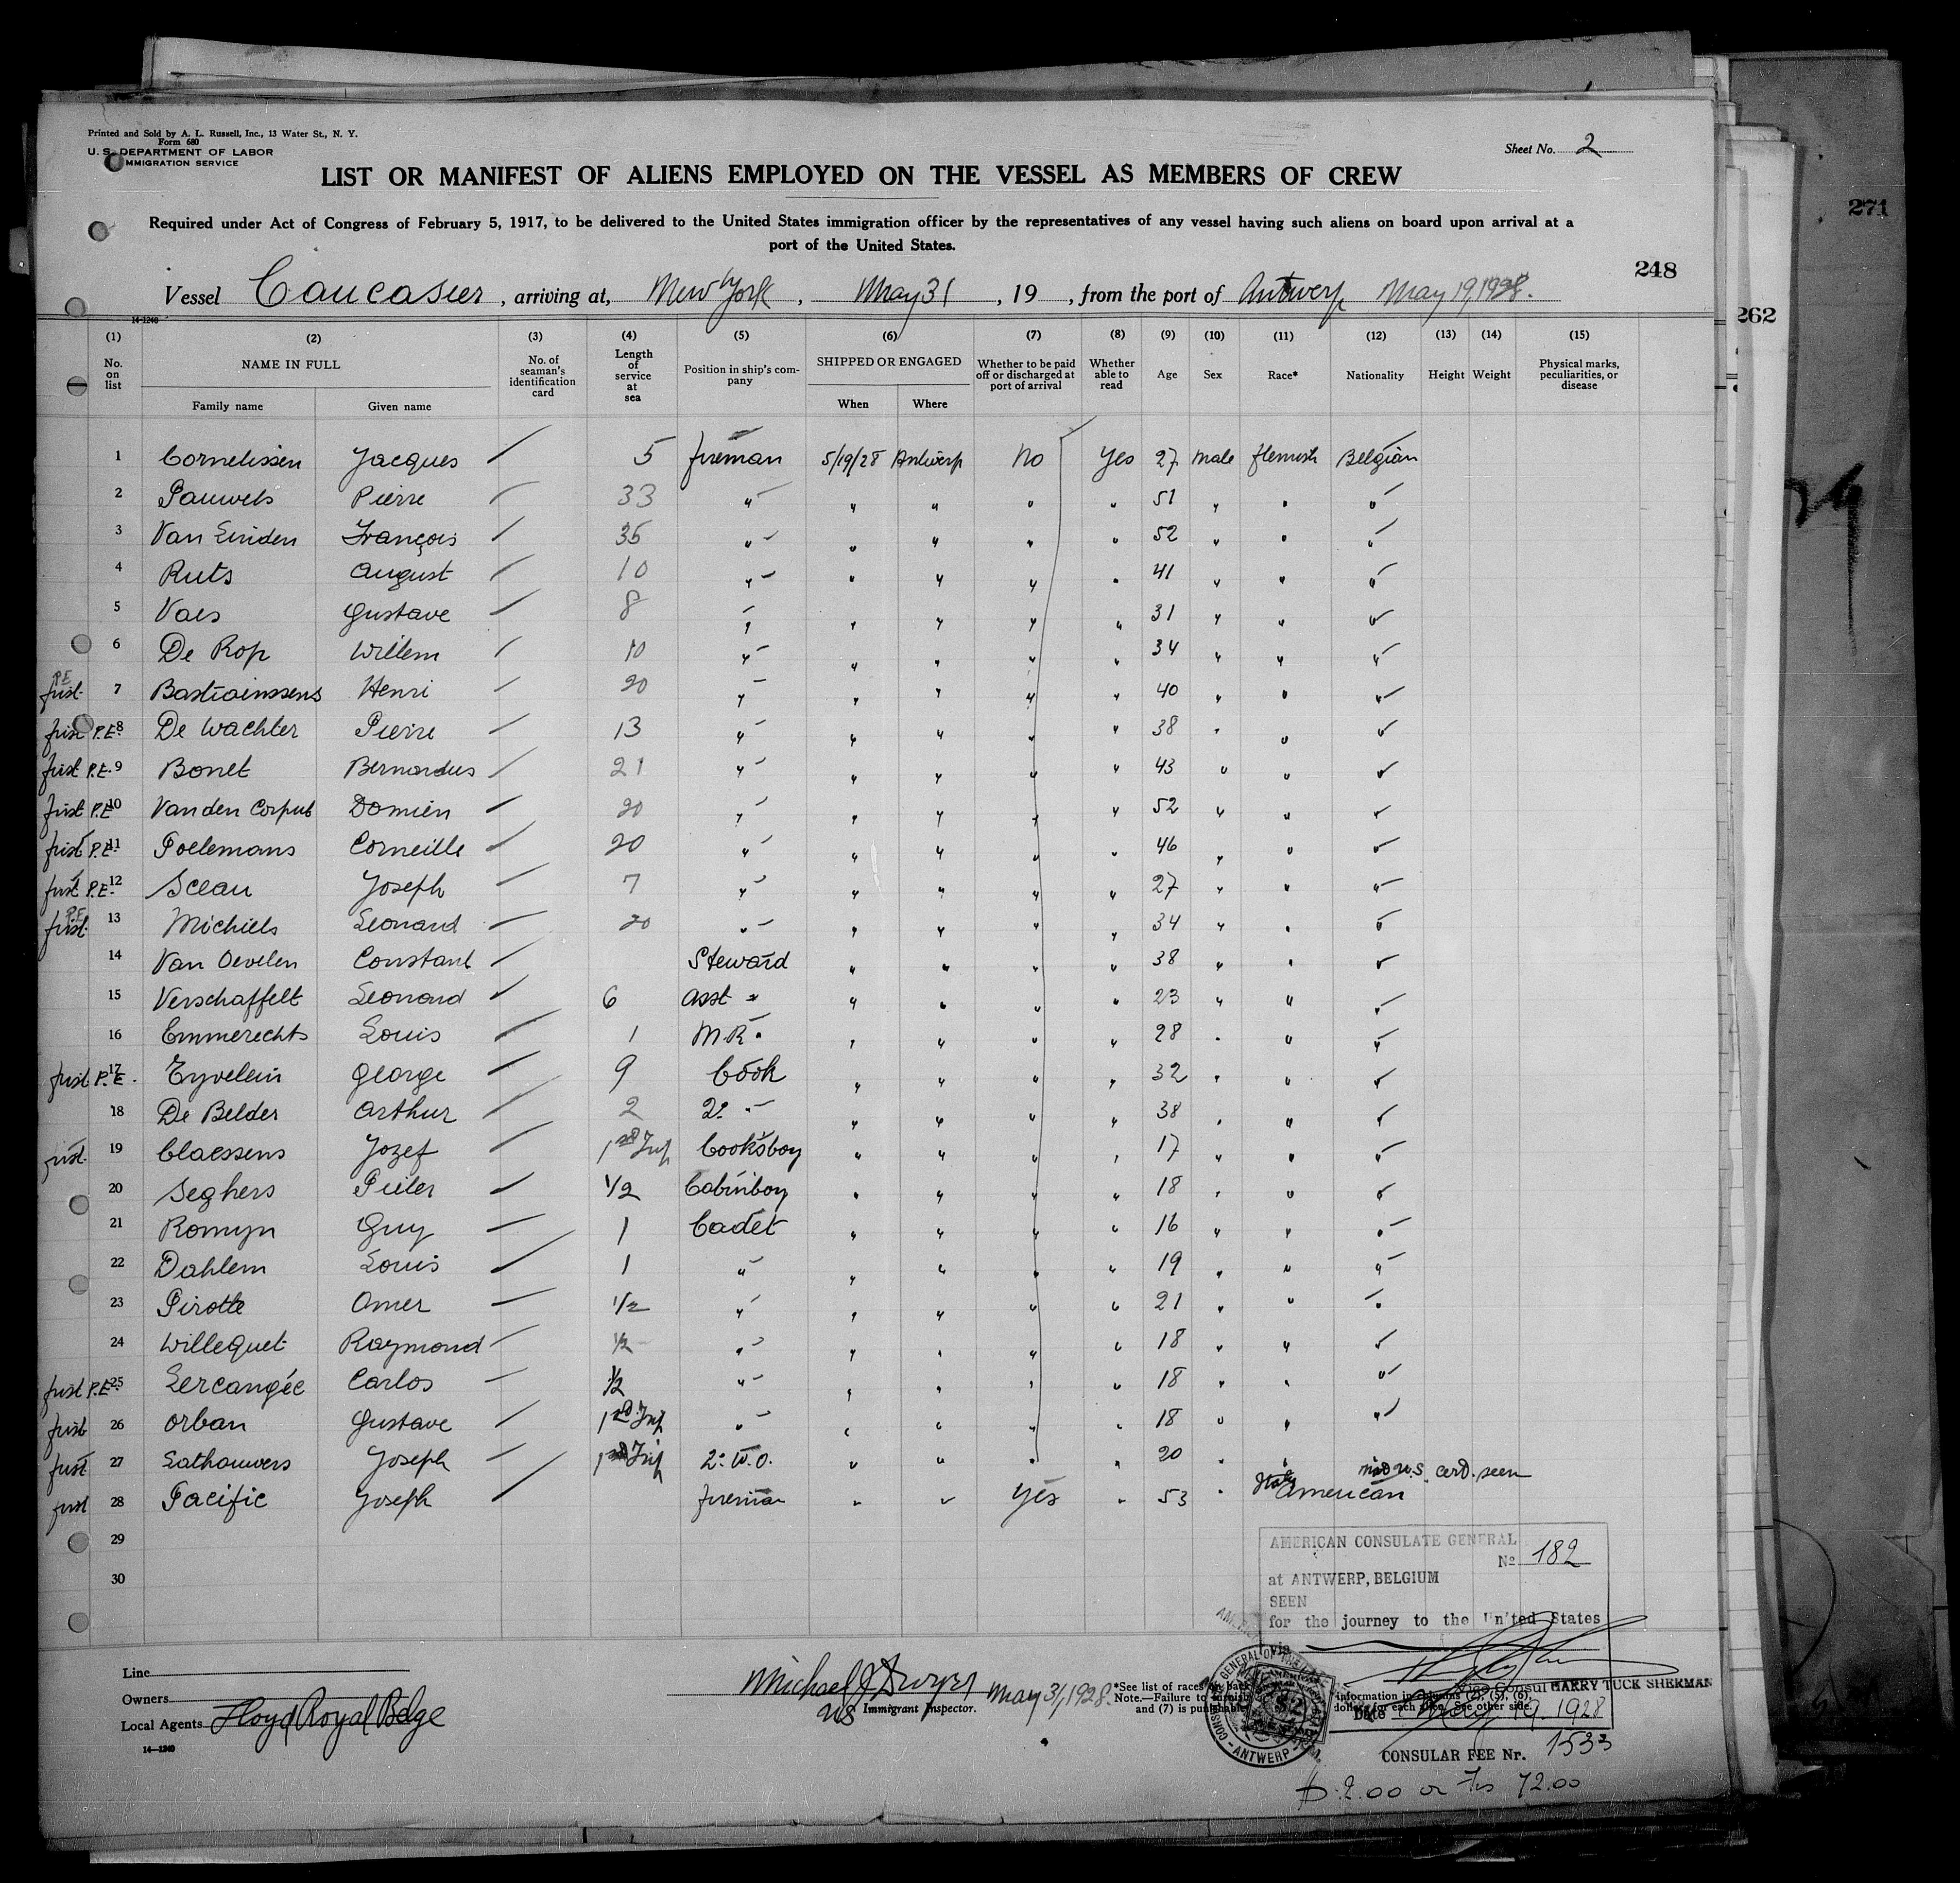 Printed and Sold by A. L. Russell, Inc., 13 Water St., N. Y.
Form 680
U. S. DEPARTMENT OF LABOR
IMMIGRATION SERVICE
Sheet No. 2
LIST OR MANIFEST OF ALIENS EMPLOYED ON THE VESSEL AS MEMBERS OF CREW
Required under Act of Congress of February 5, 1917, to be delivered to the United States immigration officer by the representatives of any vessel having such aliens on board upon arrival at a
port of the United States.
248
271
262
Vessel Caucasier, arriving at, New York, May 31, 19 , from the port of Antwerp May 19, 1928.
14-1240
(1) (2) (3) (4) (5) (6) (7) (8) (9) (10) (11) (12) (13) (14) (15)
No. on list NAME IN FULL No. of seaman's identification card Length of service at sea Position in ship's company SHIPPED OR ENGAGED Whether to be paid off or discharged at port of arrival Whether able to read Age Sex Race* Nationality Height Weight Physical marks, peculiarities, or disease
Family name Given name When Where
1 Cornelissen Jacques 5 fireman 5/19/28 Antwerp No Yes 27 male flemish Belgian
2 Pauwels Pierre 33 " " " " " 51 " " "
3 Van Linden François 35 " " " " " 52 " " "
4 Ruts August 10 " " " " " 41 " " "
5 Vaes Gustave 8 " " " " " 31 " " "
6 De Rop Willem 10 " " " " " 34 " " "
first P.E. 7 Bastiainssens Henri 20 " " " " " 40 " " "
first P.E. 8 De Wachter Pierre 13 " " " " " 38 " " "
first P.E. 9 Bonet Bernardus 21 " " " " " 43 " " "
first P.E. 10 Van den Corput Domien 20 " " " " " 52 " " "
first P.E. 11 Poelemans Corneille 20 " " " " " 46 " " "
first P.E. 12 Sceau Joseph 7 " " " " " 27 " " "
first P.E. 13 Michiels Leonard 20 " " " " " 34 " " "
14 Van Oevelen Constant Steward " " " " 38 " " "
15 Verschaffelt Leonard 6 asst " " " " " 23 " " "
16 Emmerechts Louis 1 M.R. " " " " " 28 " " "
first P.E. 17 Eyvelein George 9 Cook " " " " 32 " " "
18 De Belder Arthur 2 2° " " " " " 38 " " "
first 19 Claessens Jozef 1st Trip Cooksboy " " " " 17 " " "
20 Seghers Pieter 1/2 Cabinboy " " " " 18 " " "
21 Romyn Guy 1 Cadet " " " " 16 " " "
22 Dahlem Louis 1 " " " " " 19 " " "
23 Pirotte Omer 1/2 " " " " " 21 " " "
24 Willequet Raymond 1/2 " " " " " 18 " " "
first P.E. 25 Lercangée Carlos 1/2 " " " " " 18 " " "
first 26 Orban Gustave 1st Trip " " " " " 18 " " "
first 27 Lathouwers Joseph 1st Trip 2° W.O. " " " " 20 " "
U.S. cert. seen
first 28 Pacific Joseph fireman " " Yes " 53 " American
29
30
AMERICAN CONSULATE GENERAL
No 182
at ANTWERP, BELGIUM
SEEN
for the journey to the United States
via
Vice Consul HARRY TUCK SHERMAN
Date May 19. 1928
CONSULAR FEE Nr. 1533
$ 2.00 or Frs 72.00
Line
Owners
Local Agents Lloyd Royal Belge
14-1240
Michael J Dwyer May 31, 1928.
Immigrant Inspector.
*See list of races on back
Note.—Failure to furnish information in columns (2), (5), (6),
and (7) is punishable dollars for each alien. See other side.
ANTWERP